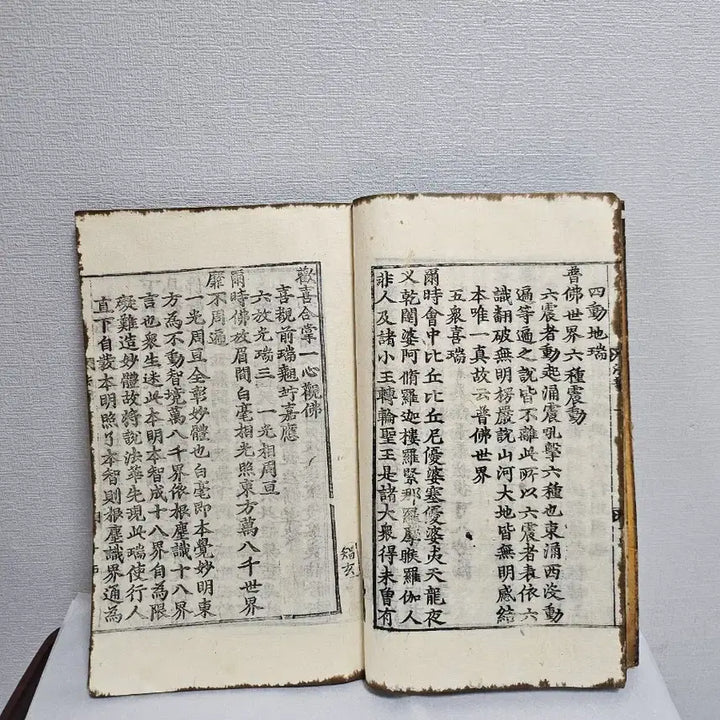 四動地瑞
普佛世界六種震動
六震者動起涌震吼擊六種也東涌西沒動
遍等遍之說皆不離此所以六震者表依六
識翻破無明楞嚴說山河大地皆無明感結
本唯一真故云普佛世界
五衆喜瑞
爾時會中比丘比丘尼優婆塞優婆夷天龍夜
叉乾闥婆阿脩羅迦樓羅緊那羅摩睺羅伽人
非人及諸小王轉輪聖王是諸大衆得未曾有
歡喜合掌一心觀佛
喜觀前瑞翹竚嘉應
六放光瑞三 一光相周亘
爾時佛放眉間白毫相光照東方萬八千世界
靡不周遍
一光周亘全彰妙體也白毫即本覺妙明東
方為不動智境萬八千界依根塵識十八界
言也衆生迷此本明本智成十八界自為限
礙難造妙體故將說法華先現此瑞使行人
直下自裁本明照了本智則根塵識界通為